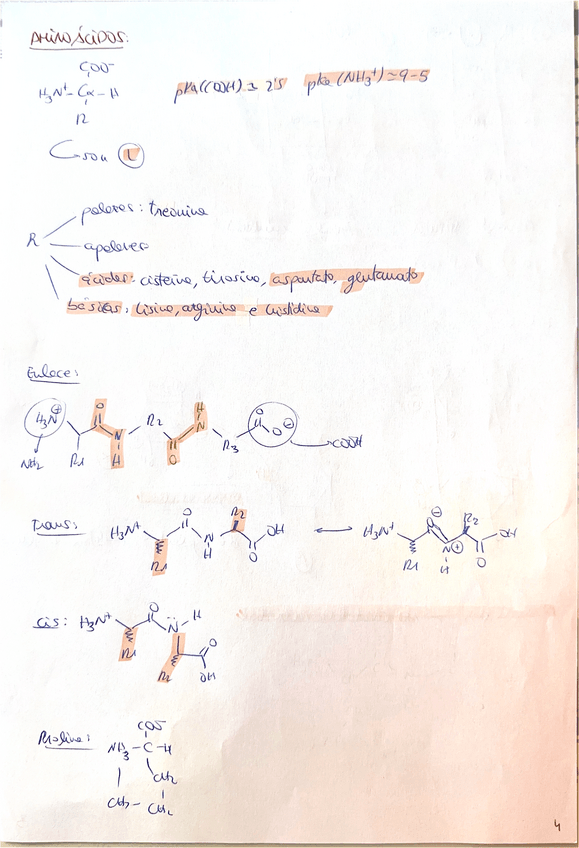 AMINOÁCIDOS:
COO⁻
H₃N⁺ - Cα - H
R
pKa (COOH) ≃ 2'5 pka (NH₃⁺) ≃ 9-5
Son L
R
polares: treonina
apolares
ácidas: cisteina, tirosina, aspartato, glutamato
básicas: lisina, arginina e histidina
Enlace:
H₃N⊕ O R₂ H N O O⊖
N R₃ COOH
NH₂ R₁ H O
Trans: H₃N⁺ O R₂ OH ⟷ H₃N⁺ O⊖ R₂ OH
R₁ N H O R₁ N⊕ H O
cis: H₃N⁺ O N̈ H
R₁ O
R₂ OH
Prolina: COO⁻
NH₃ - C - H
CH₂
CH₂ - CH₂
4